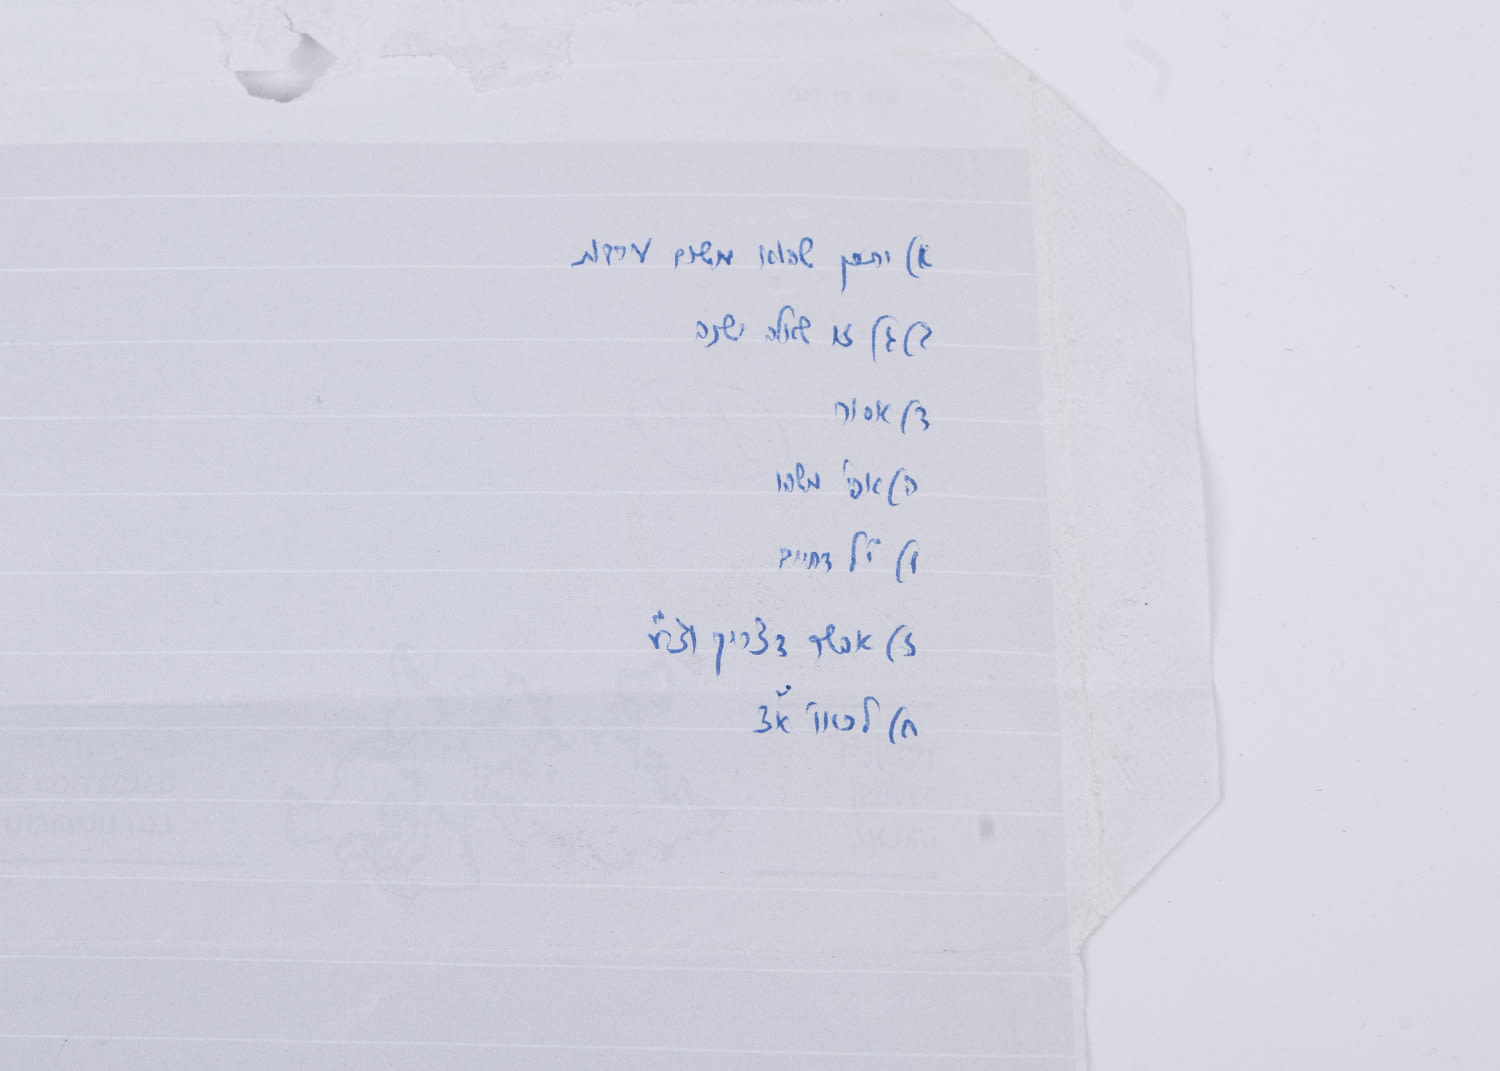 א) יתכן שהוא משום
ב) ג) זו שאלה ישנה
ד) אסור
ה) אפי' משהו
ו) י"ל דחייב
ז) אפשר דצריך וצ"ע
ח) לכאו' א"צ